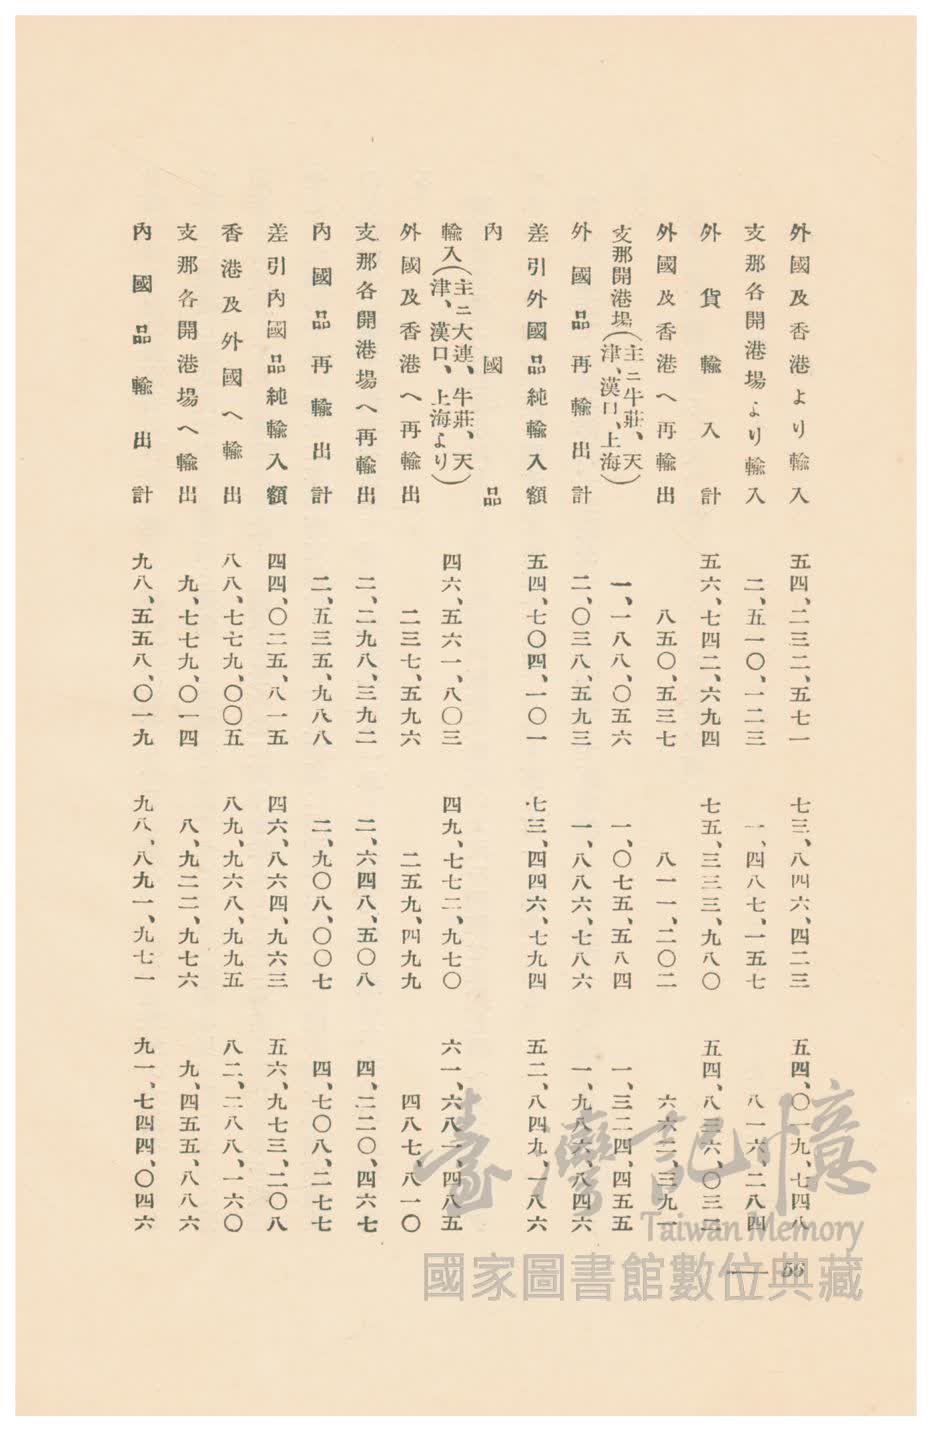 外國及香港より輸入 五四、二三二、五七一 七三、八四六、四二三 五四、〇一九、七四八
支那各開港場より輸入 二、五一〇、一二三 一、四八七、一五七 八一六、二八四
外貨輸入計 五六、七四二、六九四 七五、三三三、九八〇 五四、八三六、〇三二
外國及香港へ再輸出 八五〇、五三七 八一一、二〇二 六六二、三九一
支那開港場(主ニ牛莊、天津、漢口、上海) 一、一八八、〇五六 一、〇七五、五八四 一、三二四、四五五
外國品再輸出計 二、〇三八、五九三 一、八八六、七八六 一、九八六、八四六
差引外國品純輸入額 五四、七〇四、一〇一 七三、四四六、七九四 五二、八四九、一八六
內國品
輸入(主ニ大連、牛莊、天津、漢口、上海より) 四六、五六一、八〇三 四九、七七二、九七〇 六一、六八一、四八五
外國及香港へ再輸出 二三七、五九六 二五九、四九九 四八七、八一〇
支那各開港場へ再輸出 二、二九八、三九二 二、六四八、五〇八 四、二二〇、四六七
內國品再輸出計 二、五三五、九八八 二、九〇八、〇〇七 四、七〇八、二七七
差引內國品純輸入額 四四、〇二五、八一五 四六、八六四、九六三 五六、九七三、二〇八
香港及外國へ輸出 八八、七七九、〇〇五 八九、九六八、九九五 八二、二八八、一六〇
支那各開港場へ輸出 九、七七九、〇一四 八、九二二、九七六 九、四五五、八八六
內國品輸出計 九八、五五八、〇一九 九八、八九一、九七一 九一、七四四、〇四六
56
臺灣記憶
Taiwan Memory
國家圖書館數位典藏